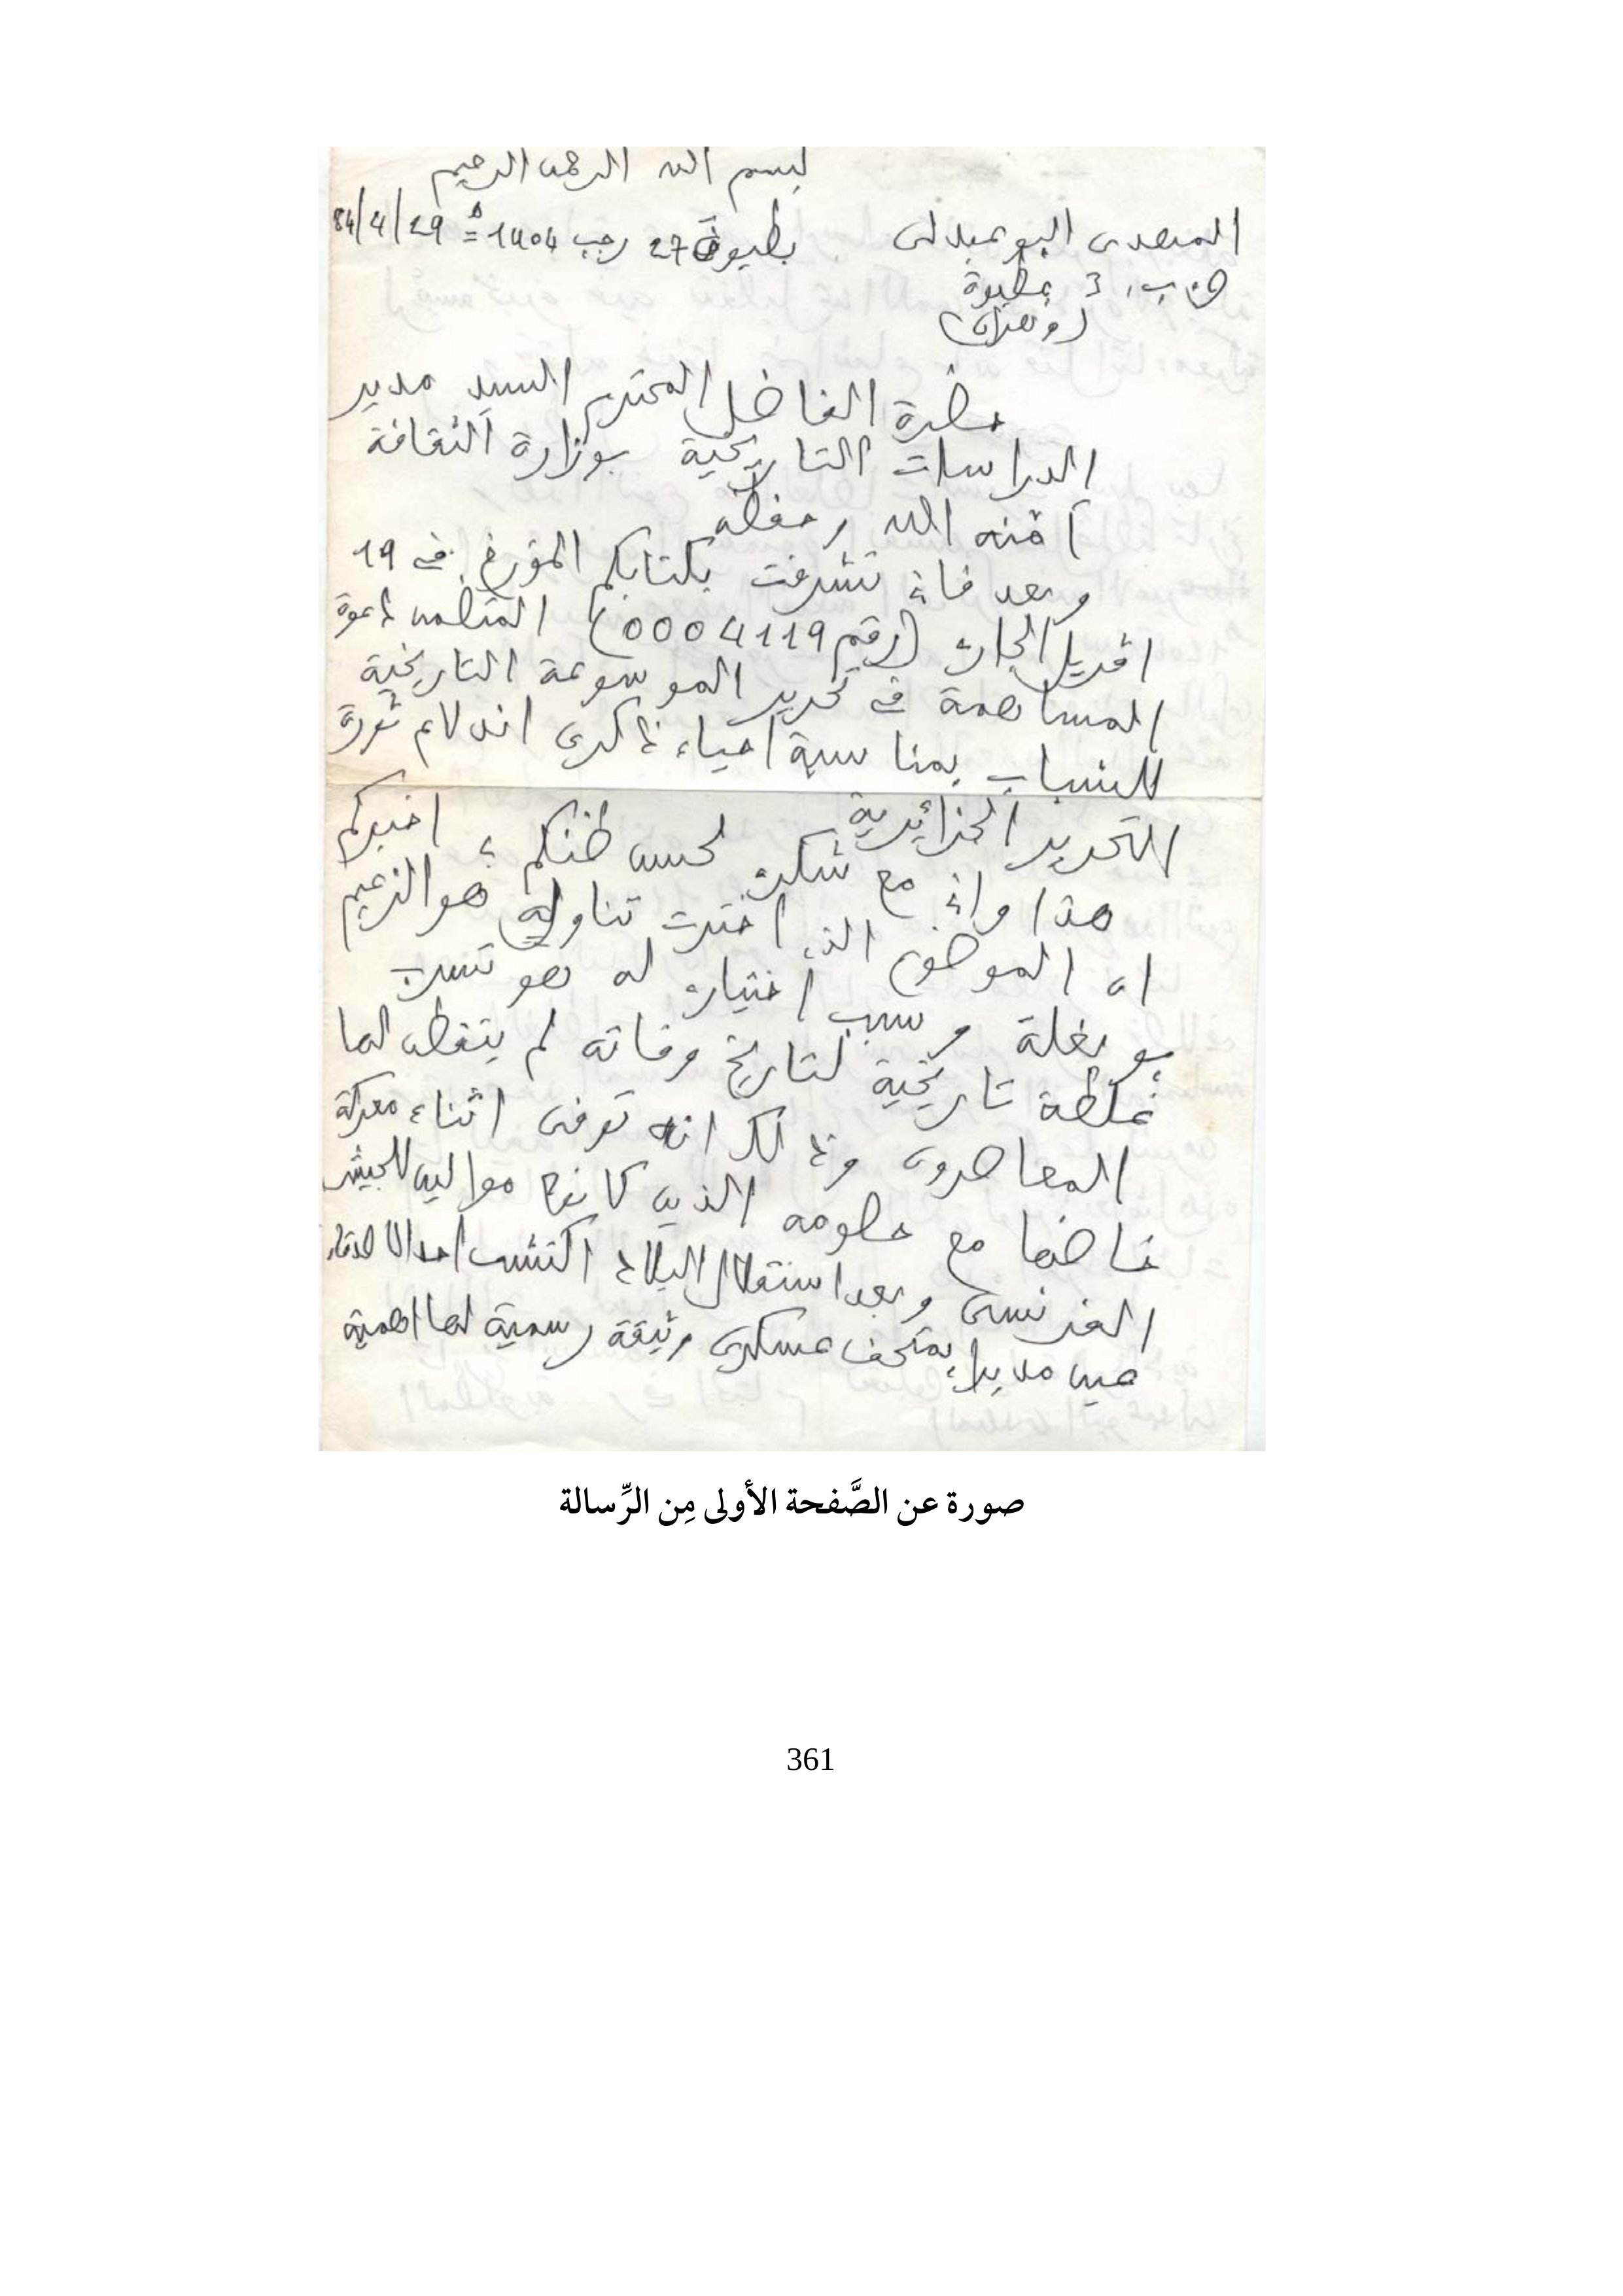 بسم الله الرحمن الرحيم
المهدي البوعبدلي بطيوة في 27 رجب 1404 هـ = 84/4/29
ص. ب. 3 بطيوة
(وهران)
حضرة الفاضل المحترم السيد مدير
الدراسات التاريخية بوزارة الثقافة
آمنه الله وحفظه
وبعد فاني تشرفت بكتابكم المؤرخ في 19
افريل الجاري (رقم 0004119) المتضمن دعوة
المساهمة في تحرير الموسوعة التاريخية
للشباب بمناسبة احياء ذكرى اندلاع ثورة
التحرير الجزائرية
هذا واني مع شكري لحسن ظنكم، اخبركم
ان الموضوع الذي اخترت تناوله هو الزعيم
بوبغلة وسبب اختياري له هو تسرب
غلطة تاريخية لتاريخ وفاته لم يتفطن لها
المعاصرون وذلك انه توفى اثناء معركة
خاضها مع خصومه الذين كانوا موالين للجيش
الفرنسي وبعد استقلال البلاد اكتشف احد الاصدقاء
حين مديرا بمتحف عسكري وثيقة رسمية لها اهمية
صورة عن الصَّفحة الأولى مِن الرِّسالة
361